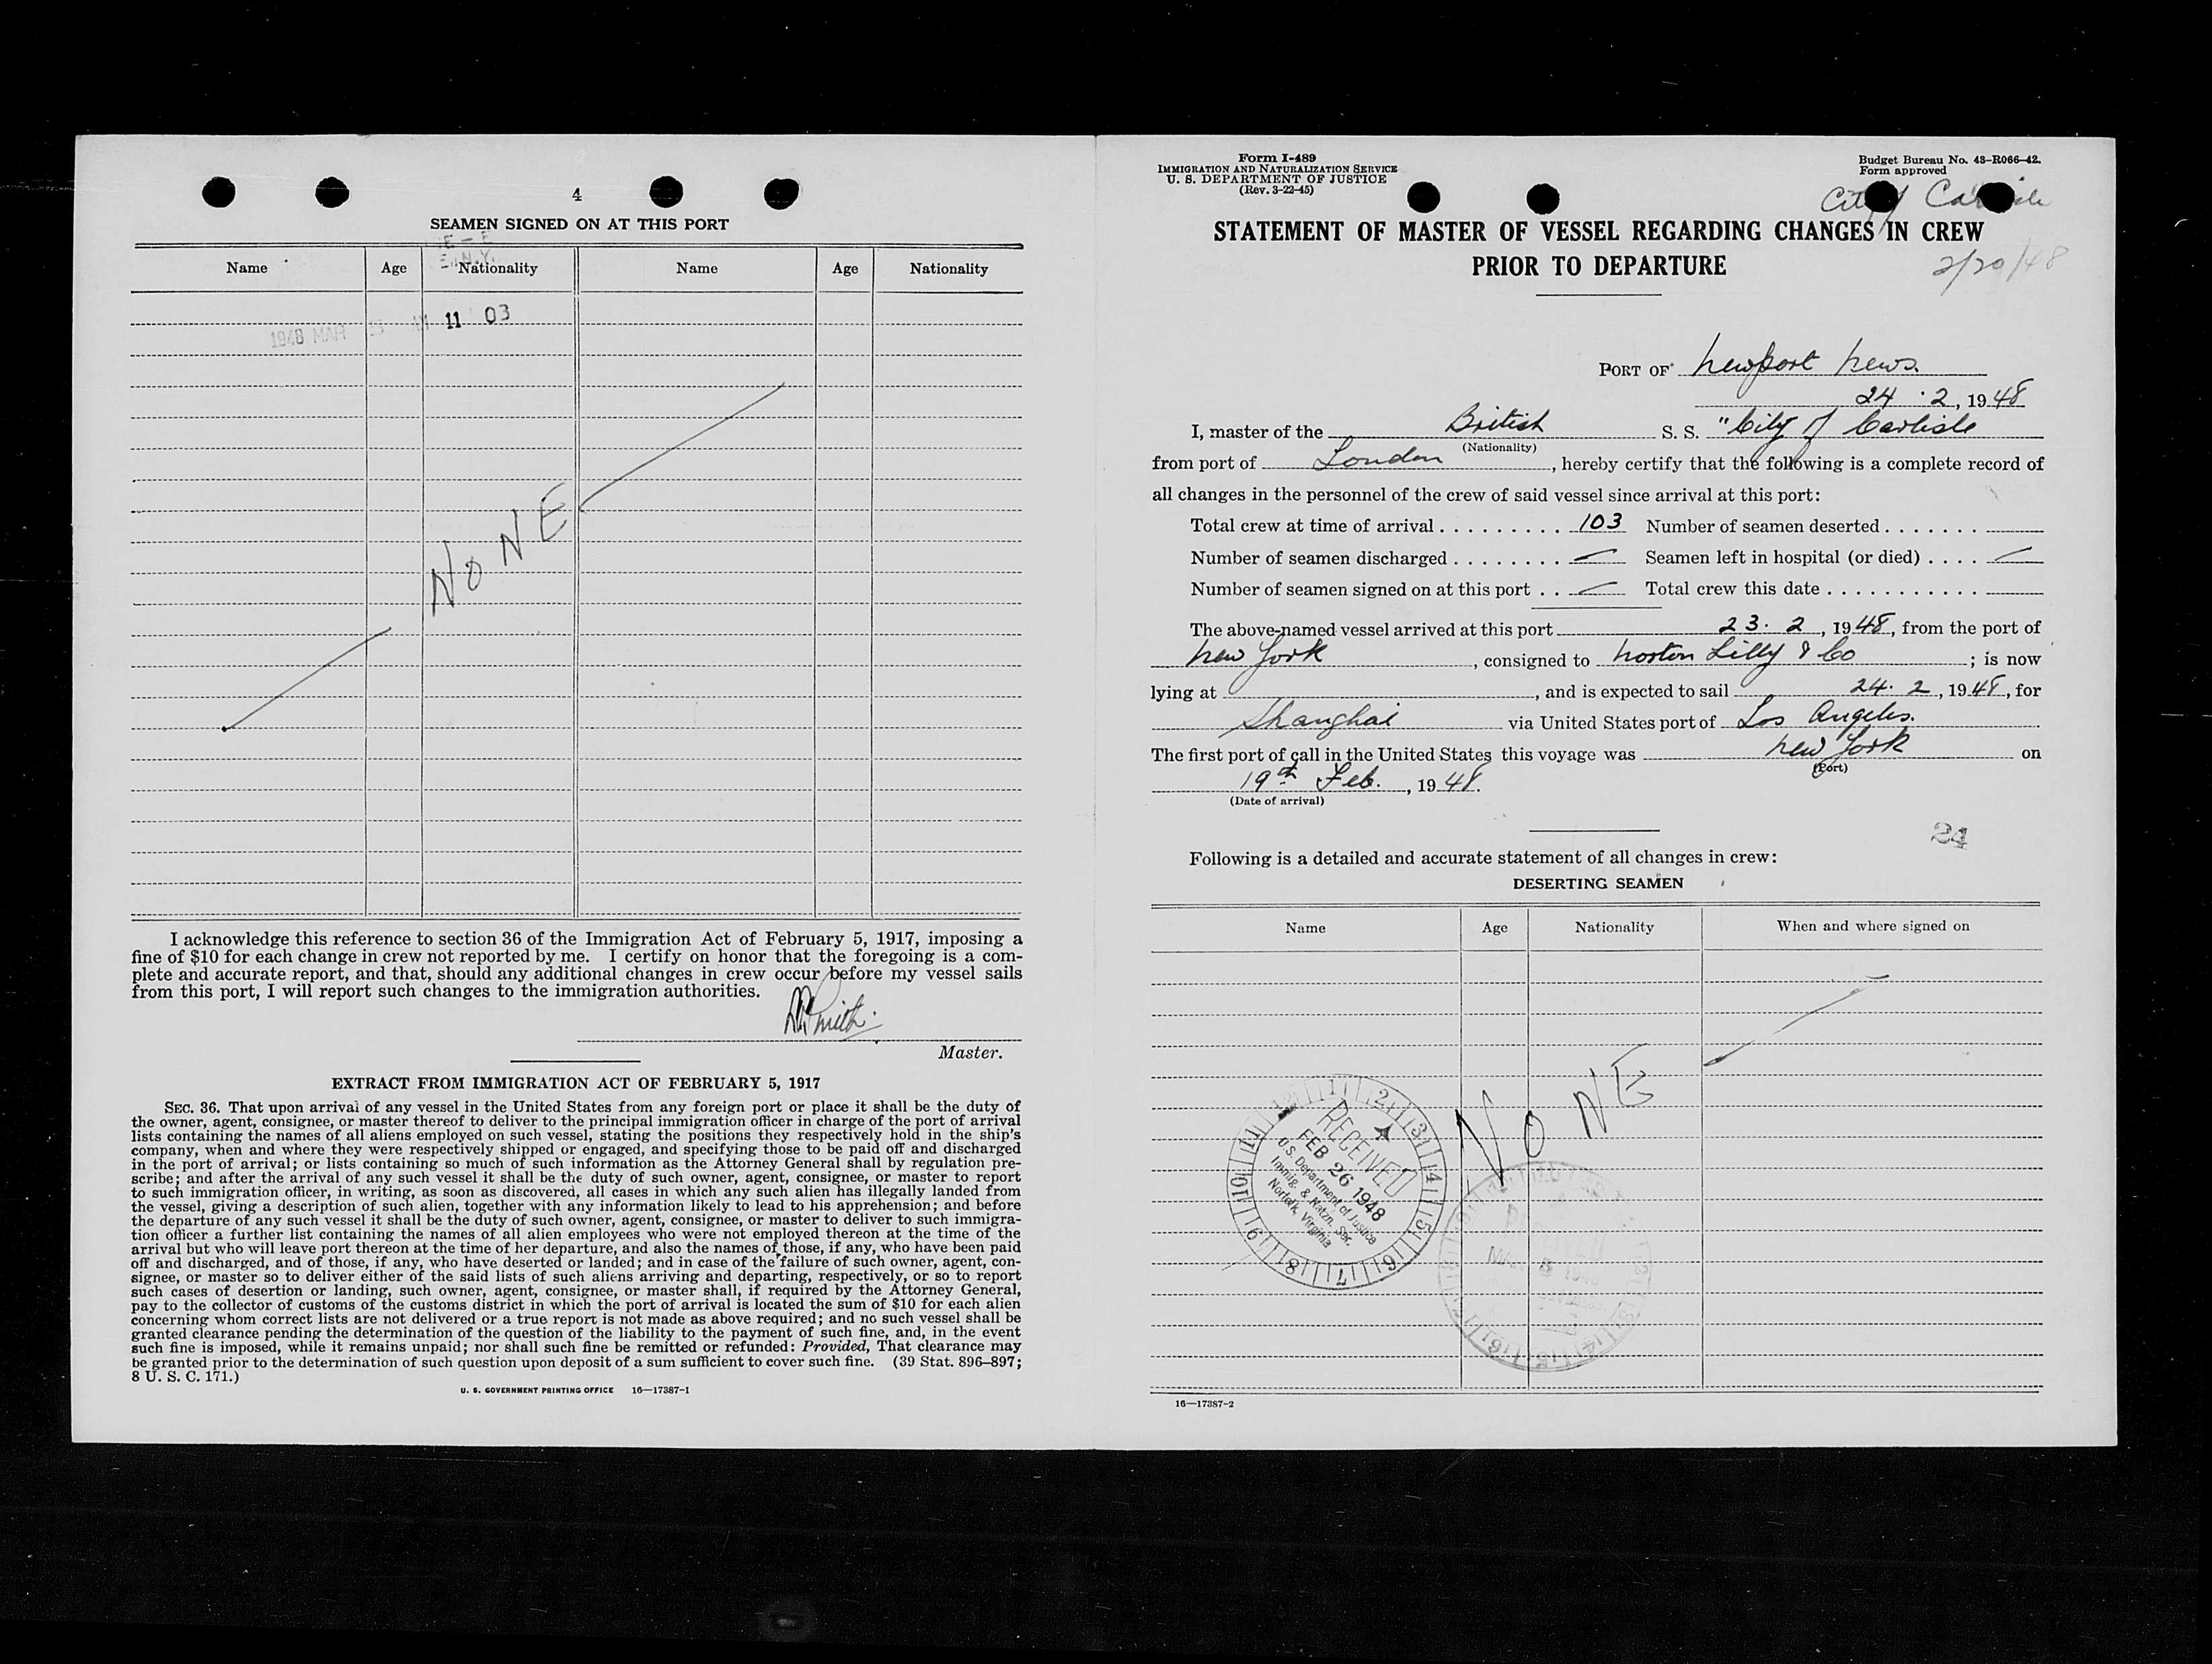 4
SEAMEN SIGNED ON AT THIS PORT
Name Age Nationality Name Age Nationality
1948 MAR 11 03
NONE
I acknowledge this reference to section 36 of the Immigration Act of February 5, 1917, imposing a
fine of $10 for each change in crew not reported by me. I certify on honor that the foregoing is a com-
plete and accurate report, and that, should any additional changes in crew occur before my vessel sails
from this port, I will report such changes to the immigration authorities.
Smith.
Master.
EXTRACT FROM IMMIGRATION ACT OF FEBRUARY 5, 1917
SEC. 36. That upon arrival of any vessel in the United States from any foreign port or place it shall be the duty of
the owner, agent, consignee, or master thereof to deliver to the principal immigration officer in charge of the port of arrival
lists containing the names of all aliens employed on such vessel, stating the positions they respectively hold in the ship's
company, when and where they were respectively shipped or engaged, and specifying those to be paid off and discharged
in the port of arrival; or lists containing so much of such information as the Attorney General shall by regulation pre-
scribe; and after the arrival of any such vessel it shall be the duty of such owner, agent, consignee, or master to report
to such immigration officer, in writing, as soon as discovered, all cases in which any such alien has illegally landed from
the vessel, giving a description of such alien, together with any information likely to lead to his apprehension; and before
the departure of any such vessel it shall be the duty of such owner, agent, consignee, or master to deliver to such immigra-
tion officer a further list containing the names of all alien employees who were not employed thereon at the time of the
arrival but who will leave port thereon at the time of her departure, and also the names of those, if any, who have been paid
off and discharged, and of those, if any, who have deserted or landed; and in case of the failure of such owner, agent, con-
signee, or master so to deliver either of the said lists of such aliens arriving and departing, respectively, or so to report
such cases of desertion or landing, such owner, agent, consignee, or master shall, if required by the Attorney General,
pay to the collector of customs of the customs district in which the port of arrival is located the sum of $10 for each alien
concerning whom correct lists are not delivered or a true report is not made as above required; and no such vessel shall be
granted clearance pending the determination of the question of the liability to the payment of such fine, and, in the event
such fine is imposed, while it remains unpaid; nor shall such fine be remitted or refunded: Provided, That clearance may
be granted prior to the determination of such question upon deposit of a sum sufficient to cover such fine. (39 Stat. 896–897;
8 U. S. C. 171.)
U. S. GOVERNMENT PRINTING OFFICE 16—17387-1
Form I-489
IMMIGRATION AND NATURALIZATION SERVICE
U. S. DEPARTMENT OF JUSTICE
(Rev. 3-22-45)
Budget Bureau No. 43–R066–42.
Form approved
City Carlisle
STATEMENT OF MASTER OF VESSEL REGARDING CHANGES IN CREW
PRIOR TO DEPARTURE
2/20/48
PORT OF Newport News.
24 . 2, 1948
I, master of the British S. S. "City of Carlisle
(Nationality)
from port of London, hereby certify that the following is a complete record of
all changes in the personnel of the crew of said vessel since arrival at this port:
Total crew at time of arrival 103 Number of seamen deserted
Number of seamen discharged Seamen left in hospital (or died)
Number of seamen signed on at this port Total crew this date
The above-named vessel arrived at this port 23. 2, 1948, from the port of
New York, consigned to Norton Lilly & Co; is now
lying at , and is expected to sail 24. 2, 1948, for
Shanghai via United States port of Los Angeles.
The first port of call in the United States this voyage was New York on
(Port)
19th Feb., 1948.
(Date of arrival)
24
Following is a detailed and accurate statement of all changes in crew:
DESERTING SEAMEN
Name Age Nationality When and where signed on
NONE
12 1 2 3 4 5 6 7 8 9 10 11
RECEIVED
FEB 26 1948
U.S. Department of Justice
Immig. & Natzn. Ser.
Norfolk, Virginia
16—17387-2